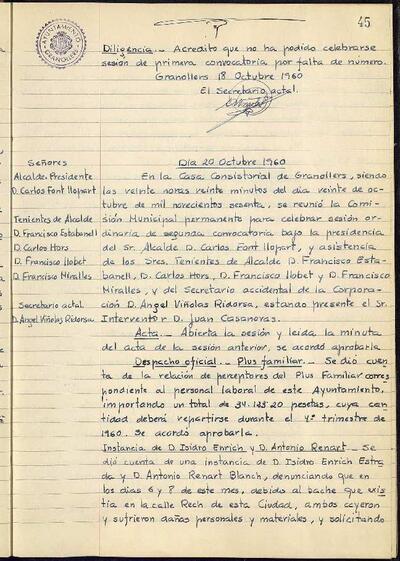 45
AYUNTAMIENTO
GRANOLLERS
Diligencia.- Acredito que no ha podido celebrarse
sesión de primera convocatoria por falta de número.
Granollers 18 Octubre 1960
El Secretario actal.
Señores
Alcalde-Presidente
D. Carlos Font Llopart
Tenientes de Alcalde
D. Francisco Estabanell
D. Carlos Hors
D. Francisco Llobet
D. Francisco Miralles
Secretario actal
D. Angel Viñolas Ridorsa
Día 20 Octubre 1960
En la Casa Consistorial de Granollers, siendo
las veinte horas veinte minutos del dia veinte de oc-
tubre de mil novecientos sesenta, se reunió la Comi-
sión Municipal permanente para celebrar sesión or-
dinaria de segunda convocatoria bajo la presidencia
del Sr. Alcalde D. Carlos Font Llopart, y asistencia
de los Sres. Tenientes de Alcalde D. Francisco Esta-
banell, D. Carlos Hors, D. Francisco Llobet y D. Francisco
Miralles, y del Secretario accidental de la Corpora-
ción D. Angel Viñolas Ridorsa, estando presente el Sr.
Interventor D. Juan Casanovas.
Acta.- Abierta la sesión y leida la minuta
del acta de la sesión anterior, se acordó aprobarla
Despacho oficial.- Plus familiar.- Se dió cuen-
ta de la relación de perceptores del Plus Familiar corres
pondiente al personal laboral de este Ayuntamiento,
importando un total de 34.125.20 pesetas, cuya can-
tidad deberá repartirse durante el 4º trimestre de
1960. Se acordó aprobarla.
Instancia de D. Isidro Enrich y D. Antonio Renart.- Se
dió cuenta de una instancia de D. Isidro Enrich Estra
da y D. Antonio Renart Blanch, denunciando que en
los dias 6 y 8 de este mes, debido al bache que exis
tia en la calle Rech de esta Ciudad, ambos cayeron
y sufrieron daños personales y materiales, y solicitando